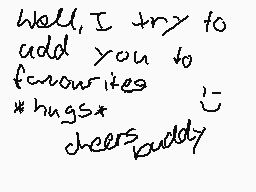 Well, I try to
add you to
favourites
*hugs* :-)
cheers buddy